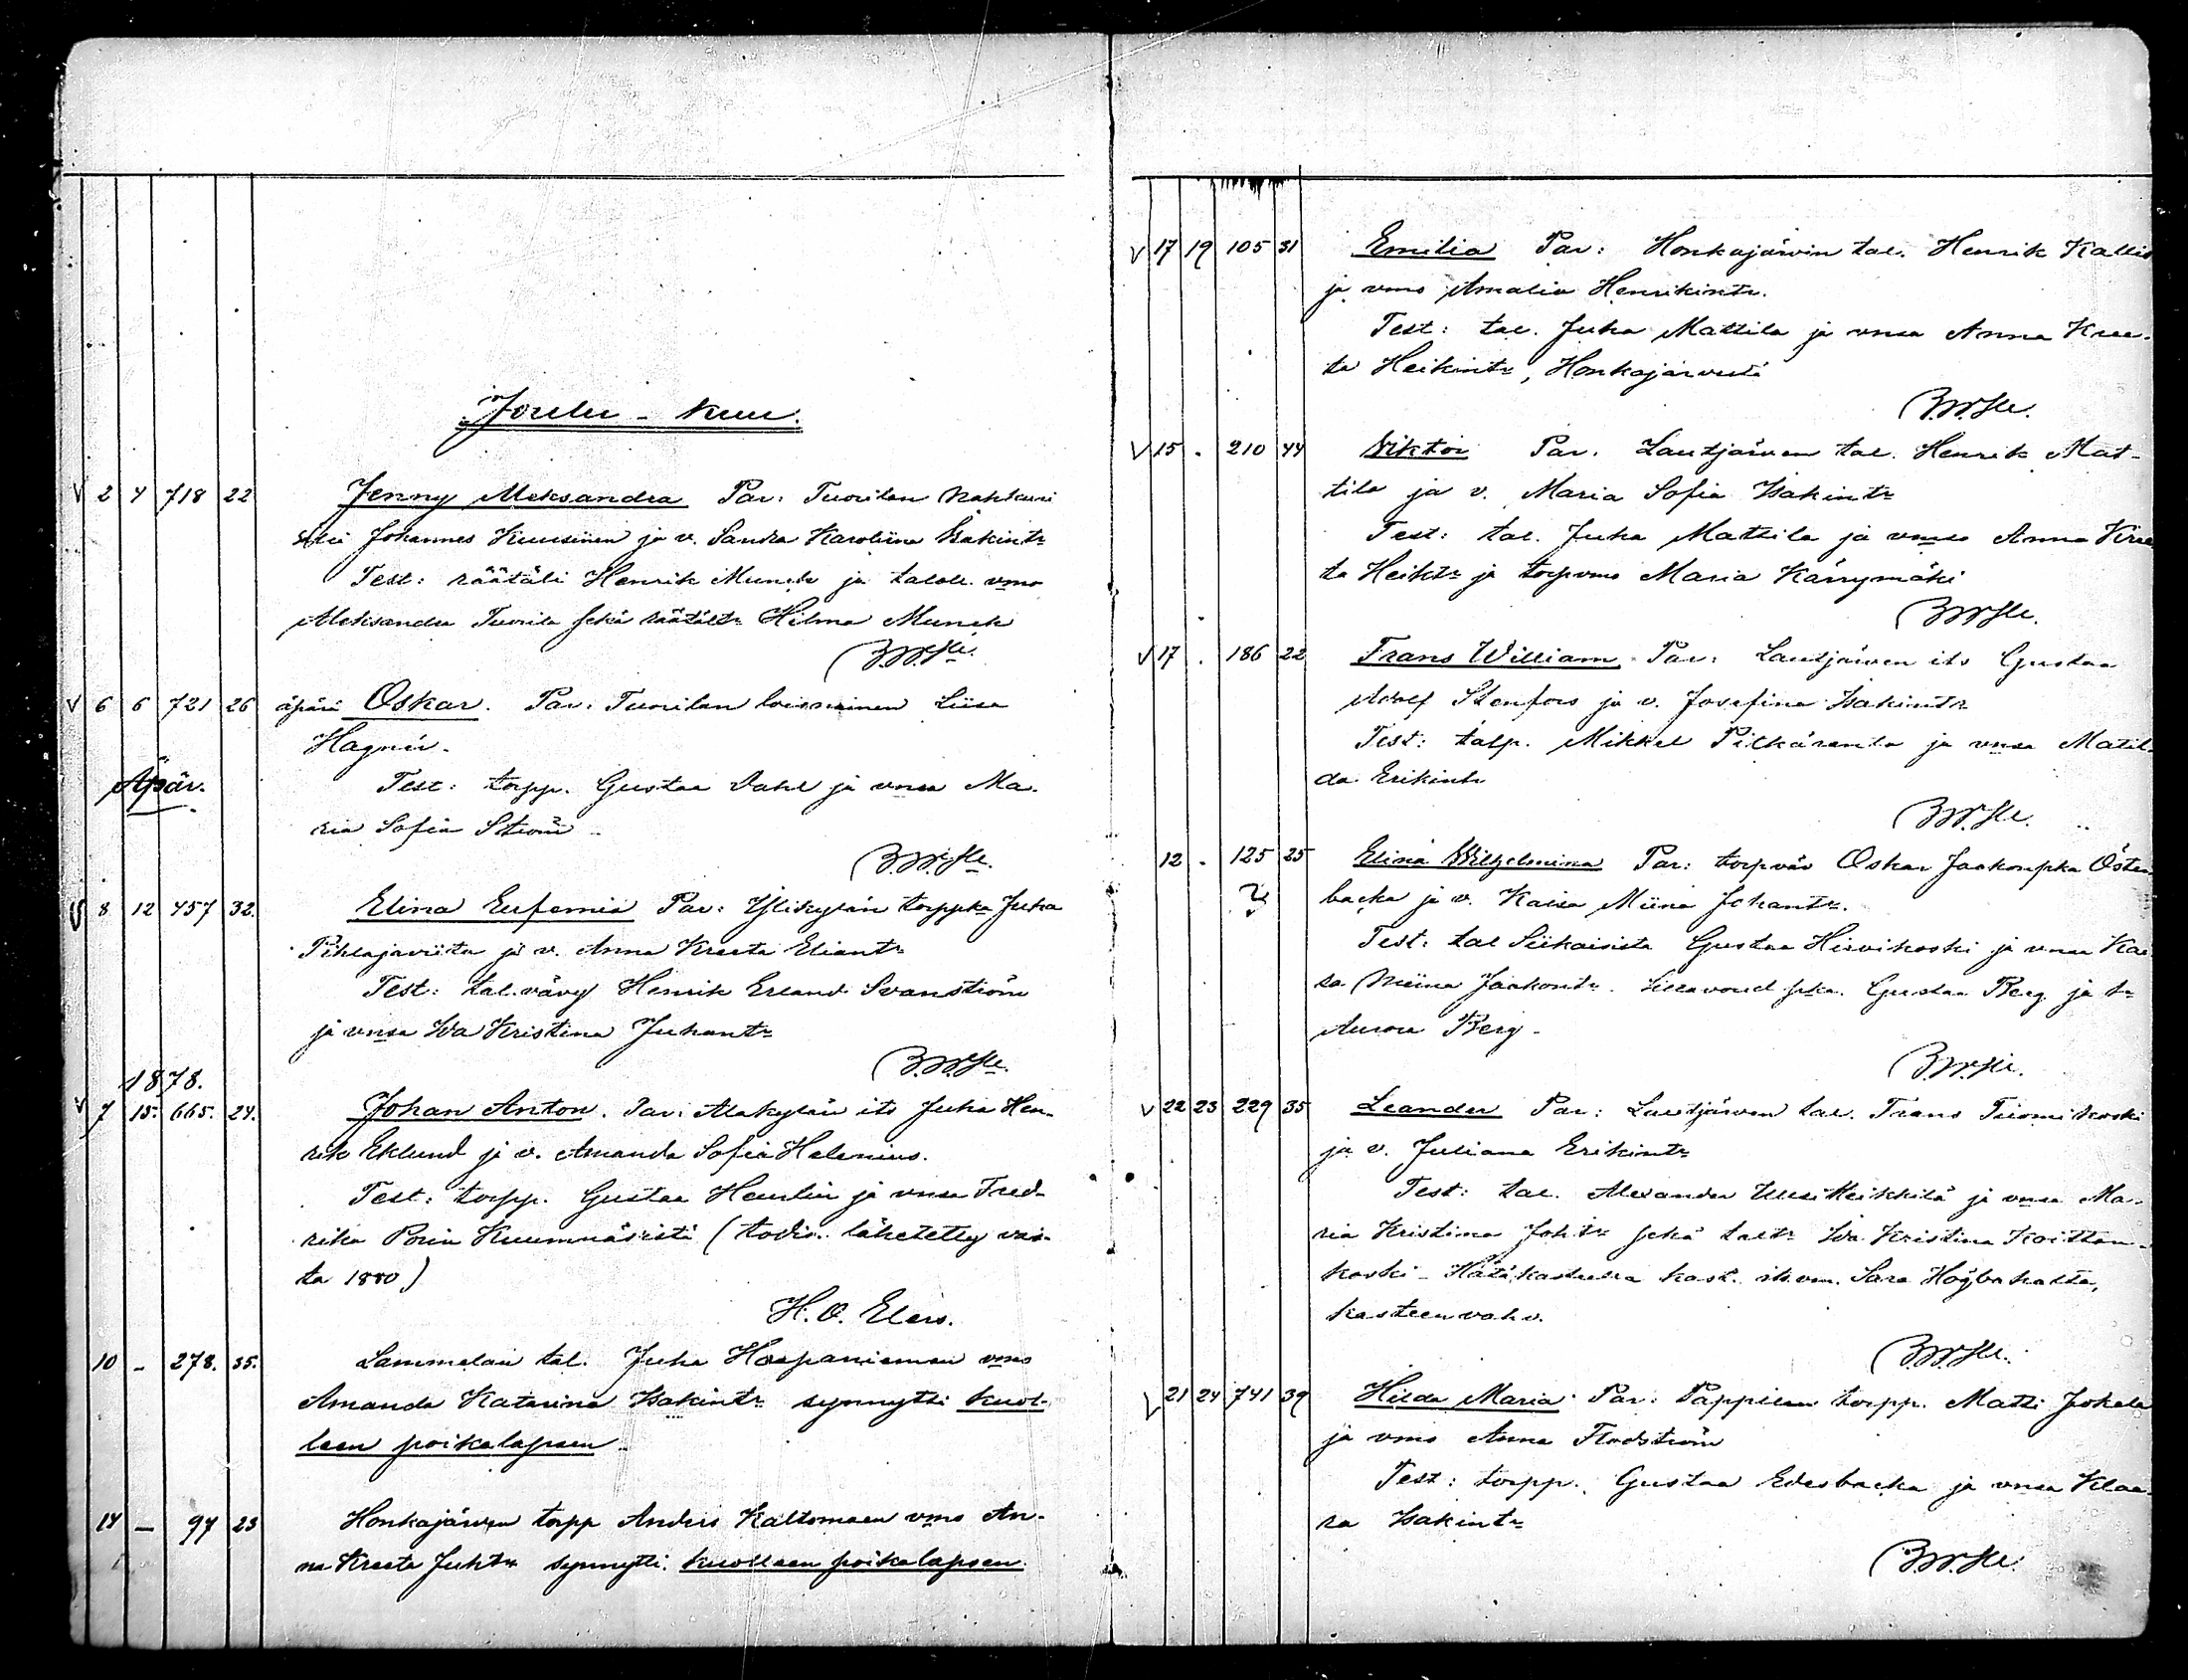 Joulu-kuu.
V 2 4 718 22 Jenny Aleksandra Par: Tuorilan nahkuri
Johannes Kuusinen ja v. Sandra Karoliina Isakintr
Test: räätäli Henrik Munck ja taloll. vmo
Aleksandra Tuorila sekä räätältr Hilma Munck
V 6 6 721 26 äpärä Oskar. Par: Tuorilan loisnainen Liisa
Hagnér.
Äpär. Test: torpp. Gustaa Dahl ja vmsa Ma-
ria Sofia Ström
V 8 12 457 32. Elina Eufemia Par: Ylikylän torppka Juha
Pihlajaviita ja v. Anna Kreeta Eliantr
Test: tal. vävy Henrik Erland Svanström
ja vmsa Iva Kristina Juhantr
1878.
V 7 15. 665. 24. Johan Anton. Par: Alakylän its Juha Hen-
rik Eklund ja v. Amanda Sofia Helenius.
Test: torpp. Gustaa Heurlin ja vmsa Fred-
rika Porin Kuuminaisista (todis. lähetetty vas-
ta 1880)
H. O. Elers.
10 - 278. 35. Lammelan tal. Juha Haapaniemen vmo
Amanda Katarina Isakintr synnytti kuol-
leen poikalapsen.
14 - 97 23 Honkajärven torpp Anders Kaltomaen vmo An-
na Kreeta Juhtr synnytti kuolleen poikalapsen.
V 17 19 105 31 Emilia Par: Honkajärvin tal. Henrik Kallio
ja vmo Amalia Henrikintr.
Test: tal. Juha Mattila ja vmsa Anna Kree-
ta Heikintr, Honkajärvestä
V 15 . 210 44 Viktor Par. Lautjärven tal. Henrik Mat-
tila ja v. Maria Sofia Isakintr
Test: tal. Juha Mattila ja vmso Anna Kree
ta Heiktr ja torpvmo Maria Kärrymäki
V 17 . 186 22 Frans William Par: Lautjärven its Gustaa
Adolf Stenfors ja v. Josefina Isakintr
Test: talp. Mikkel Pitkäranta ja vmsa Matil-
da Erikintr
12 . 125 25 Elina Wilhelmina Par: torpväv Oskar Jaakonpka Öster
backa ja v. Kaisa Miina Johantr.
Test: tal Siikaisista Gustaa Hirvikoski ja vmsa Kai
sa Miina Jaakontr. Gustaa Berg ja tr
Aurora Berg.
V 22 23 229 35 Leander Par: Lautjärven tal. Frans Tuomikoski
ja v. Juliana Erikintr
Test: tal. Alexander Uusi Heikkilä ja vmsa Ma-
ria Kristina Johtr sekä taltr Iva Kristina Koittan-
koski - Hätäkasteessa kast. itsvm. Sara Högbacka,
kasteen vahv.
V 21 24 741 39 Hilda Maria Par: Pappilan torpp. Matti Jokela
ja vmo Anna Flodström
Test: torpp. Gustaa Edesbacka ja vmsa Klaa-
ra Isakintr